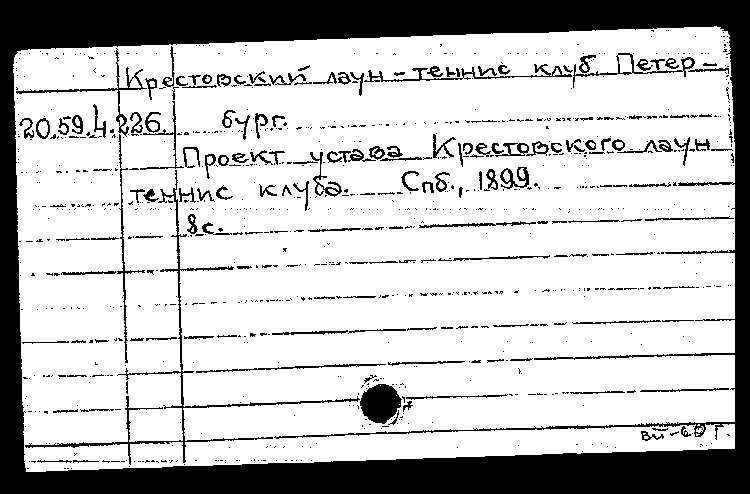 Крестовский лаун-теннис клуб. Петер-
20.59.4.226. бург.
Проект устава Крестовского лаун
теннис клуба. Спб., 1899.
8с.
ВП-60 г.